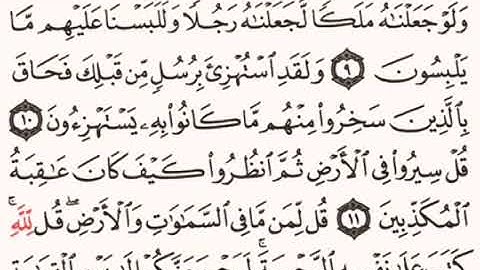 وَلَوْ جَعَلْنَٰهُ مَلَكًا لَّجَعَلْنَٰهُ رَجُلًا وَلَلَبَسْنَا عَلَيْهِم مَّا
يَلْبِسُونَ ٩ وَلَقَدِ ٱسْتُهْزِئَ بِرُسُلٍ مِّن قَبْلِكَ فَحَاقَ
بِٱلَّذِينَ سَخِرُوا۟ مِنْهُم مَّا كَانُوا۟ بِهِۦ يَسْتَهْزِءُونَ ١٠
قُلْ سِيرُوا۟ فِى ٱلْأَرْضِ ثُمَّ ٱنظُرُوا۟ كَيْفَ كَانَ عَٰقِبَةُ
ٱلْمُكَذِّبِينَ ١١ قُل لِّمَن مَّا فِى ٱلسَّمَٰوَٰتِ وَٱلْأَرْضِ ۖ قُل لِّلَّهِ ۚ
كَتَبَ عَلَىٰ نَفْسِهِ ٱلرَّحْمَةَ ۚ لَيَجْمَعَنَّكُمْ إِلَىٰ يَوْمِ ٱلْقِيَٰمَةِ